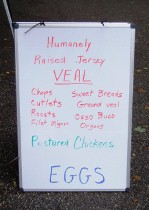 Humanely
Raised Jersey
VEAL
Chops Sweet Breads
Cutlets Ground veal
Roasts Osso Buco
Filet Mignon Organs
Pastured Chickens
EGGS